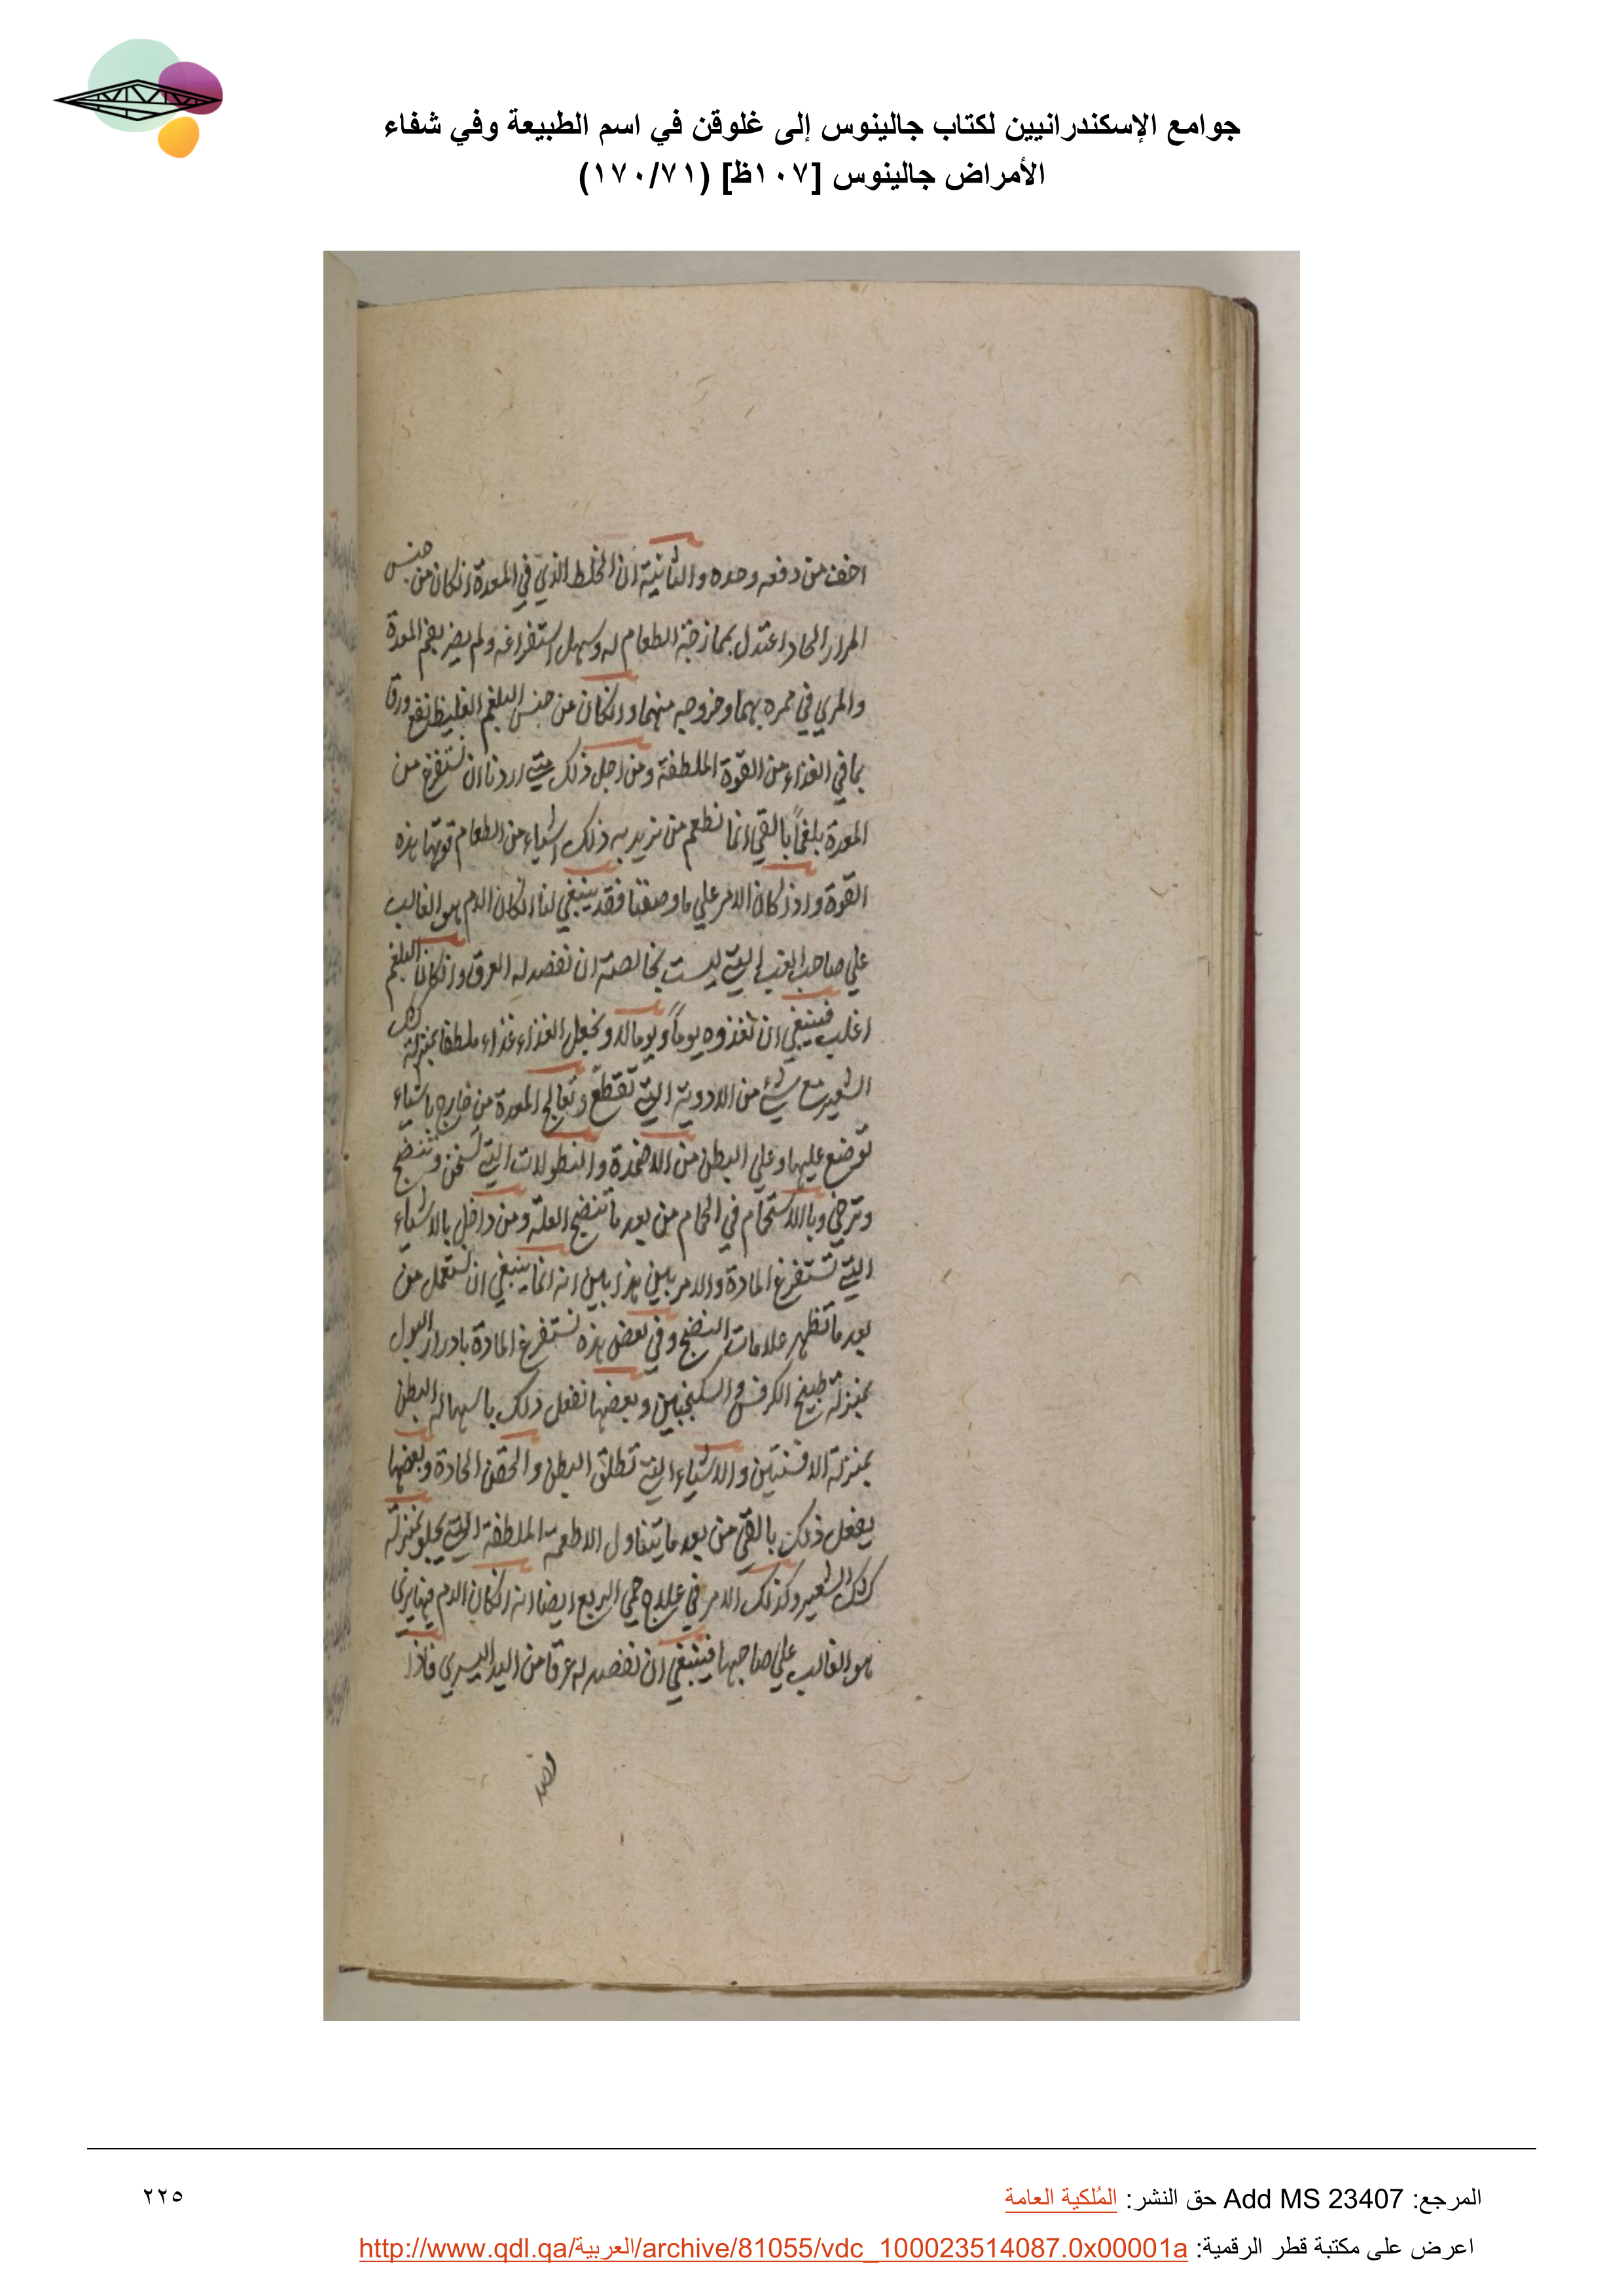 جوامع الإسكندرانيين لكتاب جالينوس إلى غلوقن في اسم الطبيعة وفي شفاء
الأمراض جالينوس [١٠٧ظ] (١٧٠/٧١)
اخف من دفعه وحده والثانية ان الخلط الذي في المعدة انكان من جنس
المرار الحاد اعتدل بممازجة الطعام له وسهل استفراغه ولم يضر بفم المعدة
والمري في ممره بهما وخروجه منهما وانكان من جنس البلغم الغليظ نقع ورق
بما في الغذاء من القوة الملطفة ومن اجل ذلك متي اردنا ان نستفرغ من
المعدة بلغماً بالقي انما نطعم من نريد به ذلك اشياء من الطعام قوتها هذه
القوة واذ كان الامر علي ما وصفنا فقد ينبغي لنا انكان الدم هو الغالب
علي صاحب الغب التي ليست بخالصة ان نفصد له العرق وانكان البلغم
اغلب فينبغي ان نغذوه يوماً ويوما لا ونجعل الغذاء غذاء ملطفا بمنزلة كشك
الشعير مع شيء من الادوية التي تقطع ونعالج المعدة من خارج باشياء
توضع عليها وعلي البطن من الاضمدة والنطولات التي تسخن وتنضج
وترخي وبالاستحمام في الحمام من بعد ما تنضج العلة ومن داخل بالاشياء
التي تستفرغ المادة والامر بين هذا بين انه انما ينبغي ان تستعمل من
بعد ما تظهر علامات النضج وفي بعض هذه تستفرغ المادة بادرار البول
بمنزلة طبيخ الكرفس والسكنجبين وبعضها تفعل ذلك باسهاله البطن
بمنزلة الافسنتين والاشياء التي تطلق البطن والحقن الحادة وبعضها
يفعل ذلك بالقي من بعد ما يتناول الاطعمة الملطفة التي يجلو بمنزلة
كشك الشعير وكذلك الامر في علاج حمي الربع ايضا انه انكان الدم فيما يري
هو الغالب علي صاحبها فينبغي ان نفصد له عرقا من اليد اليسري فاذا
المرجع: Add MS 23407 حق النشر: المُلكية العامة
٢٢٥
اعرض على مكتبة قطر الرقمية: http://www.qdl.qa/العربية/archive/81055/vdc_100023514087.0x00001a